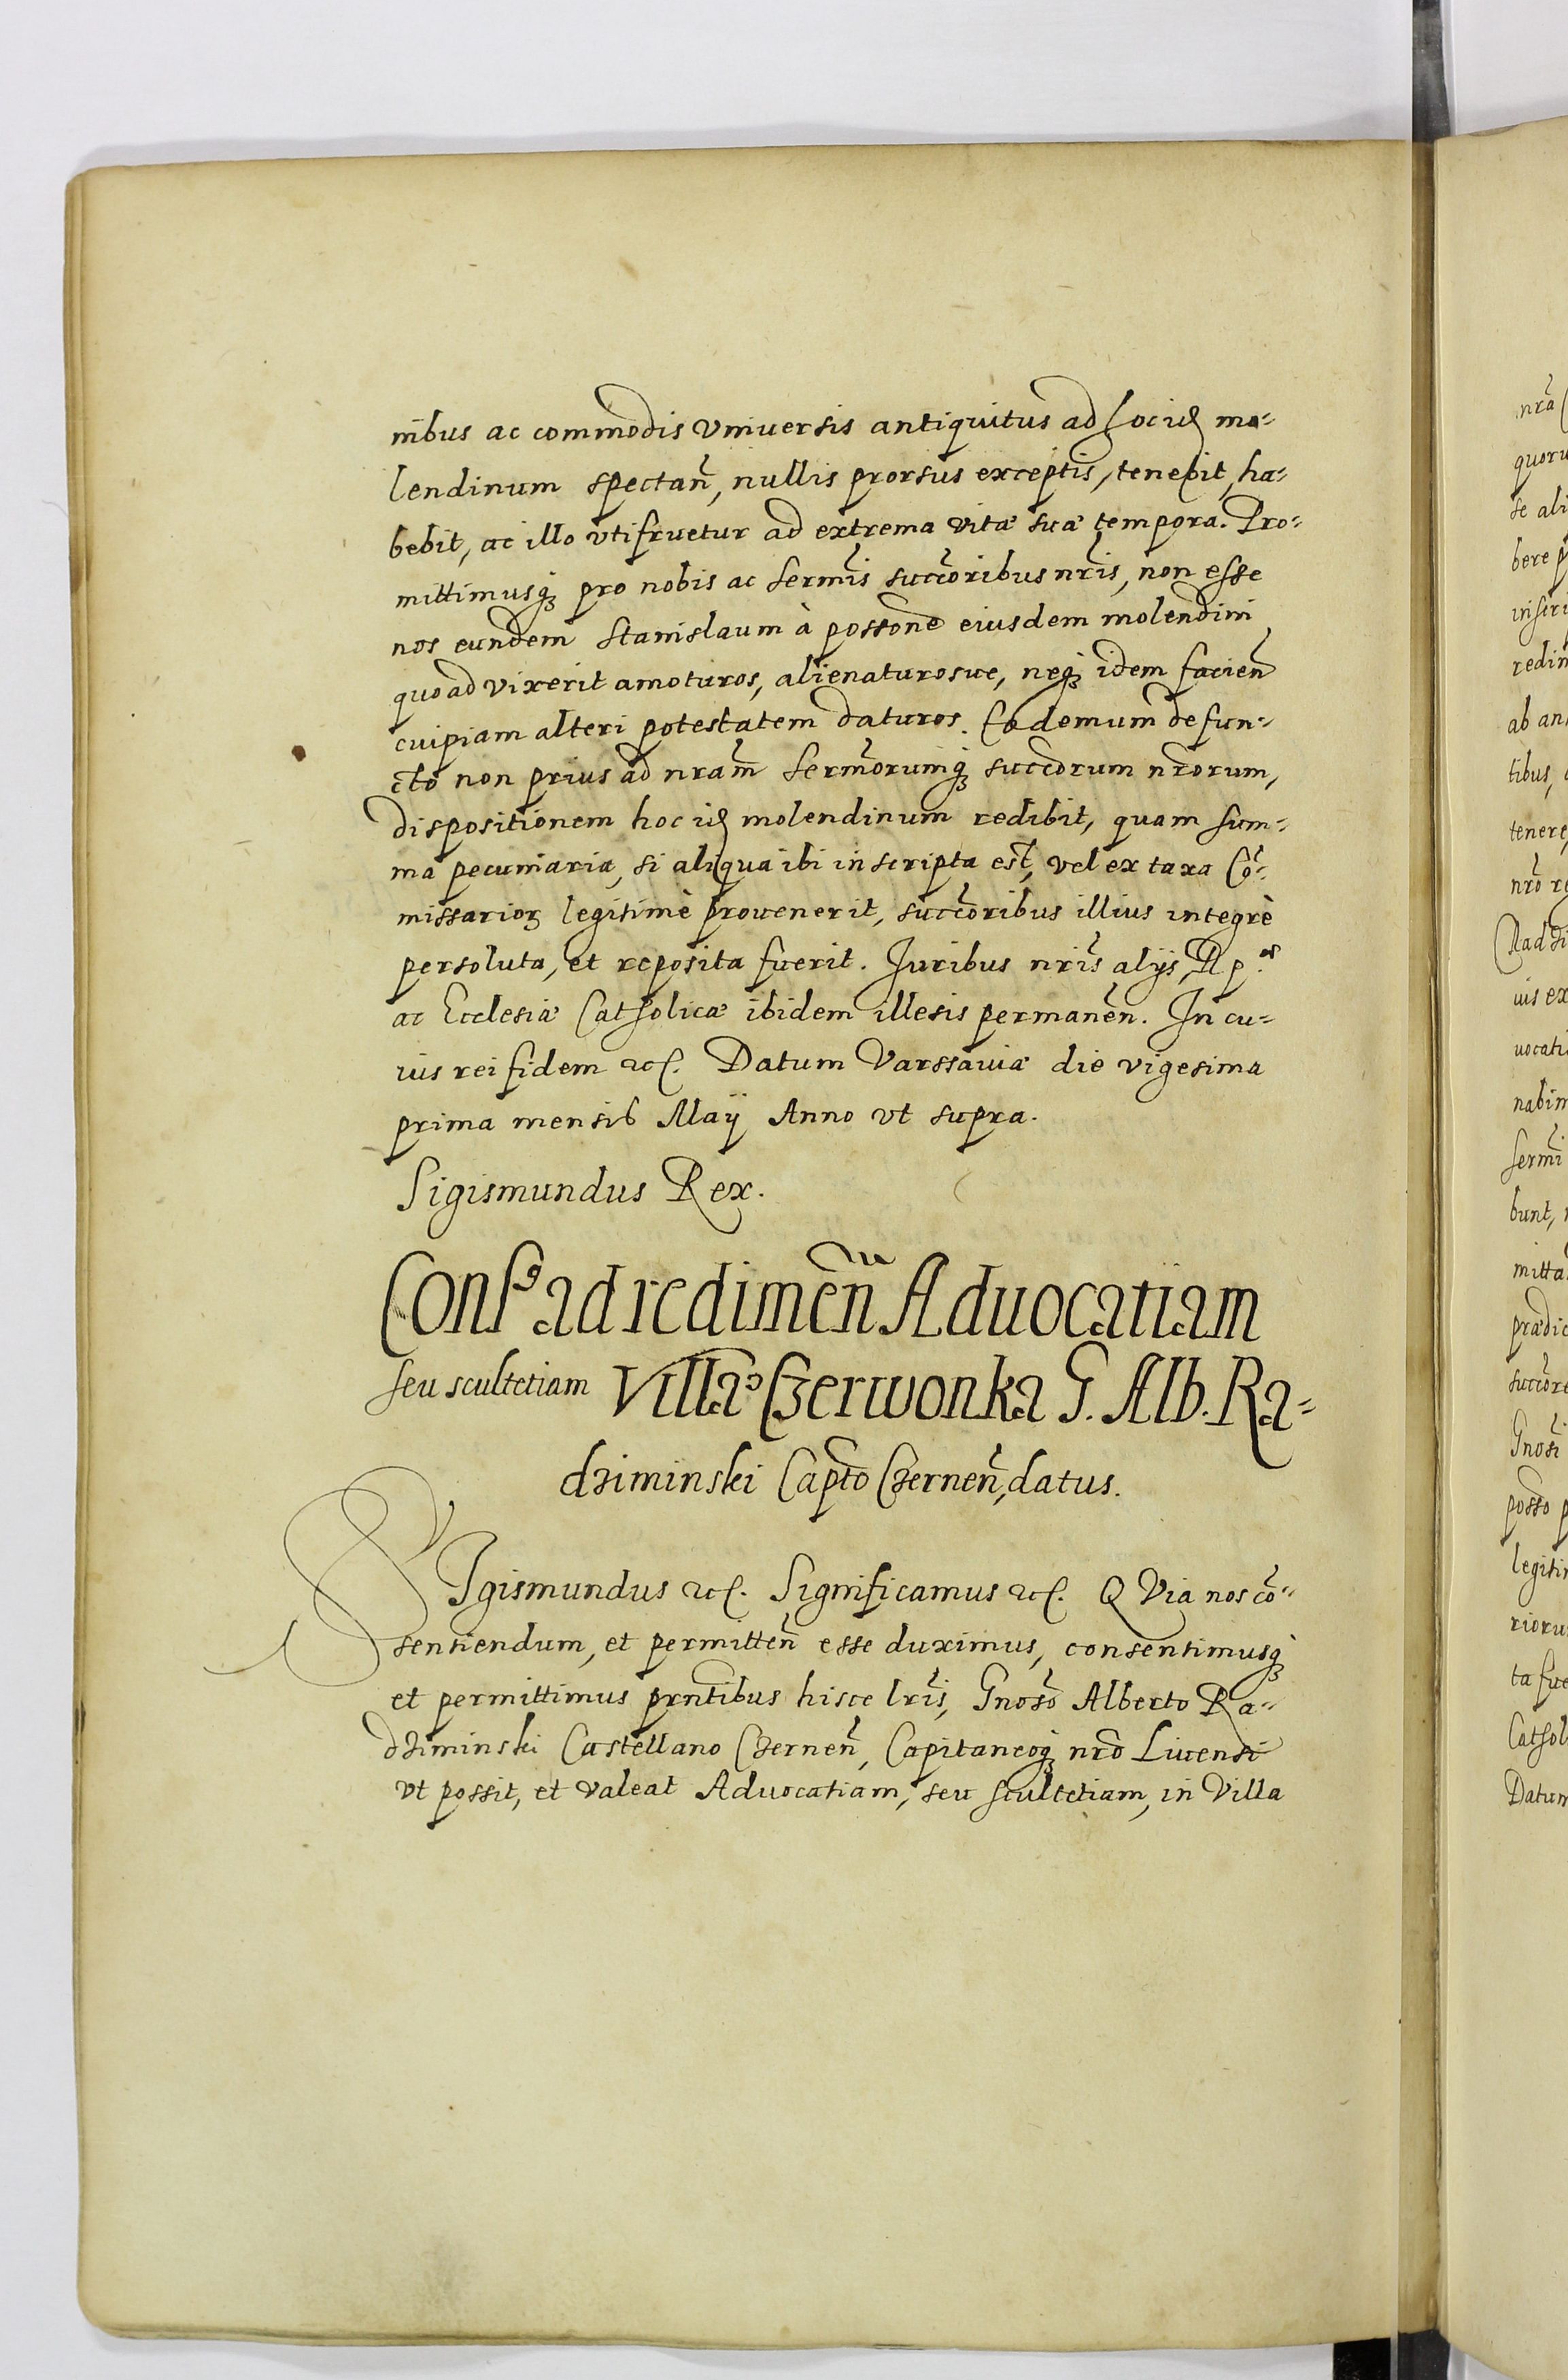 nibus ac commodis vniuersis antiquitus ad hoc idem mo⸗
lendinum spectañ, nullis prorsus exceptis, tenebit, ha⸗
bebit, ac illo vtifruetur ad extrema vitæ suæ tempora. Pro⸗
mittimusq₃ pro nobis ac Serm̃is succ̃oribus nr̃is, non esse
nos eundem Stanislaum à poss̃one eiusdem molendini
quoad vixerit amoturos, alienaturosue, neq₃ idem facieñ
cuipiam alteri potestatem daturos. Eo demum defun⸗
cto non prius ad nr̃am Serm̃orumq₃ succ̃orum nr̃orum,
dispositionem hoc idem molendinum redibit, quam sum⸗
ma pecuniaria, si aliqua ibi inscripta est, vel ex taxa Cõ⸗
missarioꝝ legitimè prouenerit, succ̃oribus illius integrè
persoluta, et reposita fuerit. Juribus nr̃is alijs, Rp.
ac Ecclesiæ Catholicæ ibidem illesis permaneñ. In cu⸗
ius rei fidem etc. Datum Varssauiæ die vigesima
prima mensis Maij Anno vt supra.
Sigismundus Rex.
Cons⁹ ad redimeñ Aduocatiam
seu scultetiam Villæ Czerwonka G. Alb. Ra⸗
dziminski Capt̃o Czerneñ, datus.
SIgismundus etc. Significamus etc. QVia nos cõ⸗
sentiendum, et permitteñ esse duximus, consentimusq₃
et permittimus prñtibus hisce lr̃is, Gnoso Alberto Ra⸗
dziminski Castellano Czerneñ, Capitaneoq₃ nr̃o Liuensi
vt possit, et valeat Aduocatiam, seu scultetiam, in Villa
nr̃a
quoru
se ali
bere p
inscri
redim
ab an
tibus,
tenere,
nr̃o re
Radzi
uis ex
uocati
nabim
Serm̃i
bunt,
mitta
prædic
succ̃ore
Gnosi
posso p
legiti
rioru
ta fue
Cathol
Datum